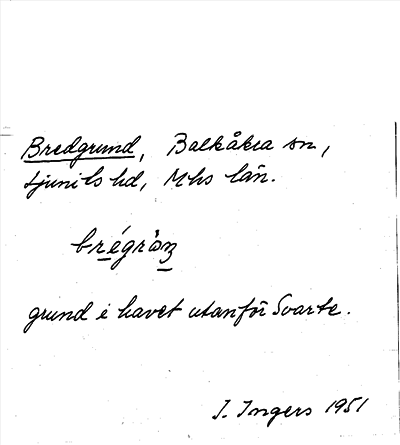 Bredgrund, Balkåkra sn,
Ljunits hd, Mhs län.
brégràn
grund i havet utanför Svarte.
I. Ingers 1951